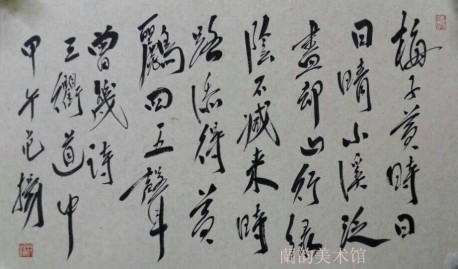 梅子黄時日
日晴小溪泛
盡却山行緑
陰不減来時
路添得黄
鸝四五聲
曾幾詩
三衢道中
甲午
蘭韵美术馆